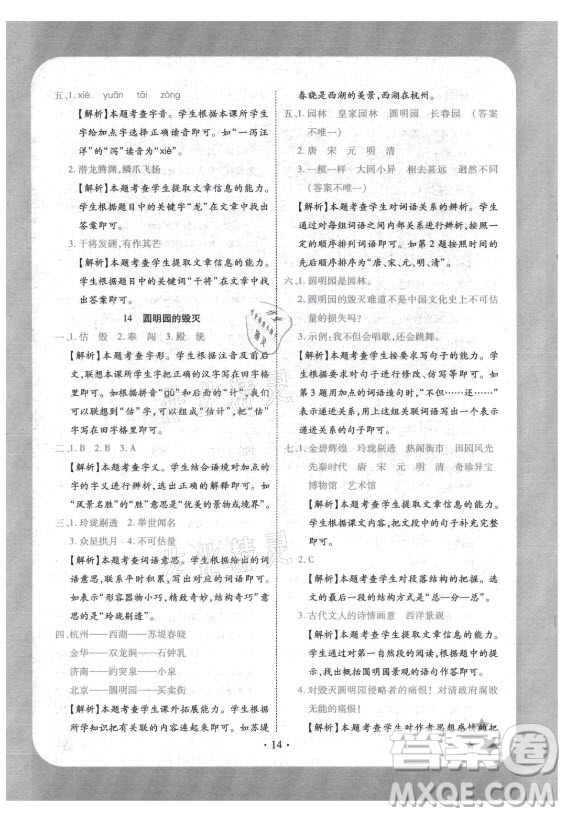 五、1. xiè yuān tāi zòng
【解析】本题考查字音。学生根据本课所学生
字给加点字选择正确读音即可。如“一泻汪
洋”的“泻”读音为“xiè”。
2. 潜龙腾渊,鳞爪飞扬
【解析】本题考查学生提取文章信息的能力。
学生根据题目中的关键字“龙”在文中找出
答案即可。
3. 干将发硎,有作其芒
【解析】本题考查学生提取文章信息的能力。
学生根据题目中的关键词“干将”在文中找
出答案即可。
14 圆明园的毁灭
一、1. 估 毁 2. 奉 闯 3. 殿 统
【解析】本题考查字形。学生根据注音及前后
汉字,联想组成词语,把正确的汉字写在田字
格里即可。根据拼音“gū”和后面的“计”,我们
可以联想到“估”字,可以组成“估计”,把“估”
字写在田字格里即可。
二、1. B 2. B 3. A
【解析】本题考查字义。学生结合语境给加点
的字的字义进行辨析,选出正确的解释即可。如
“风景名胜”的“胜”意思是“优美的景物或境界”。
三、1. 玲珑剔透 2. 举世闻名
3. 众星拱月 4. 不可估量
【解析】本题考查词语意思。学生根据词语的
意思,联系平时积累,写出相对应的词语即
可。如“形容器物精致,结构细巧”的意思就
是“玲珑剔透”。
四、杭州——西湖——苏堤春晓
金华——双龙洞——石钟乳
济南——趵突泉——小泉
北京——圆明园——买卖街
【解析】本题考查文学积累。学生根据平时课
外所学知识把有关联的内容连起来即可。如苏堤
春晓是西湖的美景,西湖在杭州。
五、1. 园林 皇家园林 圆明园 长春园 (答案
不唯一)
2. 唐 宋 元 明 清
3. 一模一样 大同小异 相去甚远 迥然不同
(答案不唯一)
【解析】本题考查学生对词语关系的辨析。学生
通过对每组词语之间内部关系进行辨析,按一
定的顺序排列词语即可。如第2题是按照朝代
的先后顺序进行排列的,即为“唐、宋、元、明、清”。
六、1. 圆明园是园林。
2. 圆明园的毁灭难道不是中国文化史上不可估
量的损失吗?
3. 示例:我不但会唱歌,还会跳舞。
【解析】学生按照要求写句子的能力。学生根
据题目要求进行改写、缩写、仿写等即可。如
第3题用加点的词语造句,“不但……还……”
表示递进关系,学生使用该关联词语写一句表
达递进关系的话即可。
七、1. 金碧辉煌 玲珑剔透 热闹街市 田园风光
先秦时代 唐 宋 元 明 清 奇珍异宝
博物馆 艺术馆
【解析】本题考查学生提取文章信息的能力。
学生根据短文内容,从文章中找到相关的句子
填空即可。
2. C
【解析】本题考查学生对段落结构的把握。选
文最后一段的结构方式是“总—分—总”。
3. 古代文人的诗情画意 西洋景观
【解析】本题考查学生的概括能力。学生通过
对第一自然段的阅读,从中找出能概括第一自
然段描绘圆明园景观的语句作答即可。
4. 对毁灭圆明园侵略者的痛恨!对清政府腐败
无能的痛恨!
【解析】本题考查学生对作者思想感情的把
· 14 ·
答案圈
MXQE.COM
作业精灵
作业精灵